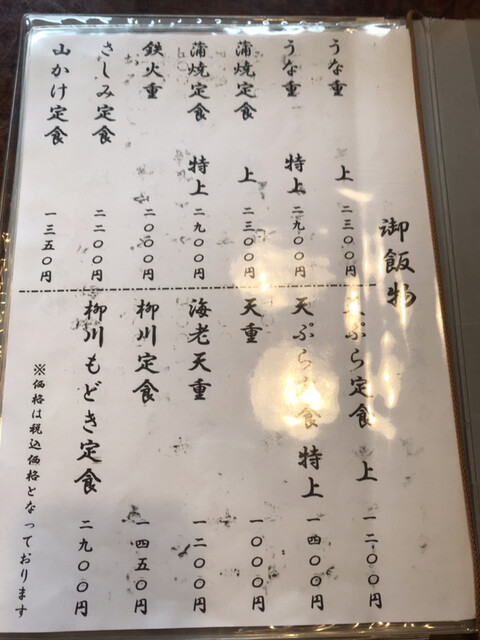 御飯物
うな重 上 二三〇〇円
うな重 特上 二九〇〇円
蒲焼定食 上 二三〇〇円
蒲焼定食 特上 二九〇〇円
鉄火重 二〇〇〇円
さしみ定食 二二〇〇円
山かけ定食 一三五〇円
ぷら定食 上 一二〇〇円
天ぷら定食 特上 一四〇〇円
天重 一〇〇〇円
海老天重 一二〇〇円
柳川定食 一四五〇円
柳川もどき定食 二九〇〇円
※価格は税込価格となっております